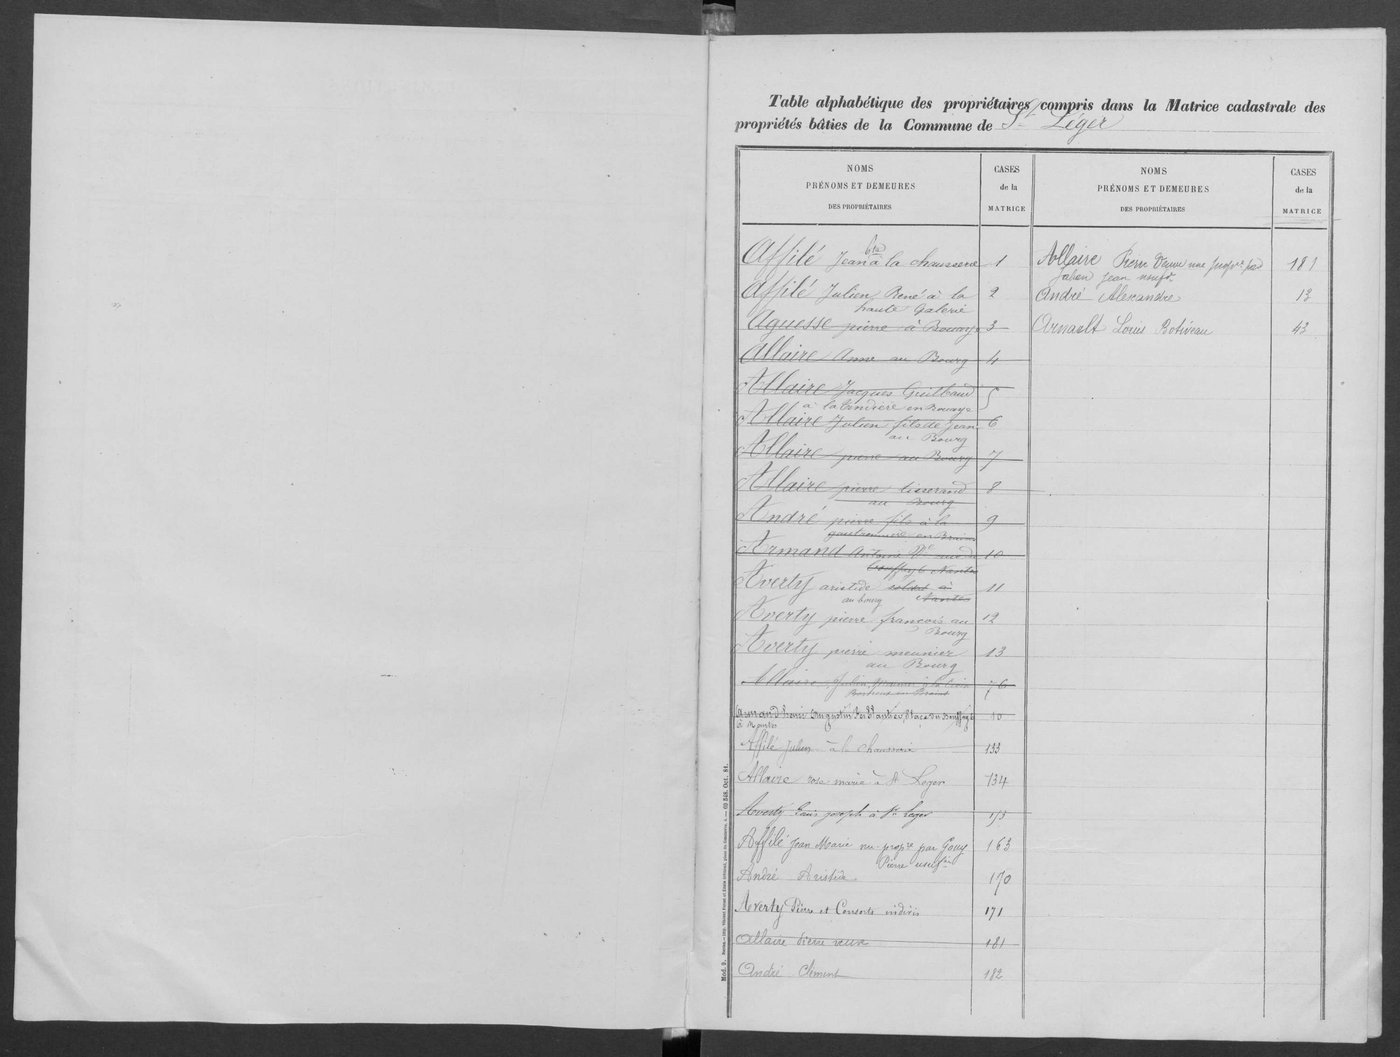 Table alphabétique des propriétaires compris dans la Matrice cadastrale des
propriétés bâties de la Commune de St Léger
NOMS
PRÉNOMS ET DEMEURES
DES PROPRIÉTAIRES
CASES
de la
MATRICE
Affilé Jean à la chausserie 1
Affilé Julien René à la 2
haute Galerie
Aguesse pierre à Bouaye 3
Allaire Anne au Bourg 4
Allaire Jacques Guilbaud 5
à la en Bouaye
Allaire Julien fils de Jean 6
au Bourg
Allaire pierre au Bourg 7
Allaire pierre tisserand 8
au Bourg
André pierre fils à la 9
en Brains
Armand Antoine 10
à Nantes
Averty aristide soldat à 11
au bourg Nantes
Averty pierre françois au 12
Bourg
Averty pierre meunier 13
au Bourg
Allaire Julien 76
en Brains
Armand Louis Augustin 10
à Nantes
Affilé Julien à la Chausserie 133
Allaire rose marie à St Leger 134
Averty Louis joseph à St Leger 153
Affilé Jean Marie nu propre par Gouy 163
Pierre usuf
André Aristide 170
Averty Pierre et Consorts indivis 171
Allaire Pierre veuve 181
André Clément 182
NOMS
PRÉNOMS ET DEMEURES
DES PROPRIÉTAIRES
CASES
de la
MATRICE
Allaire Pierre Veuve nue prop par 181
Jean usuf
André Alexandre 13
Arnault Louis Botiveau 43